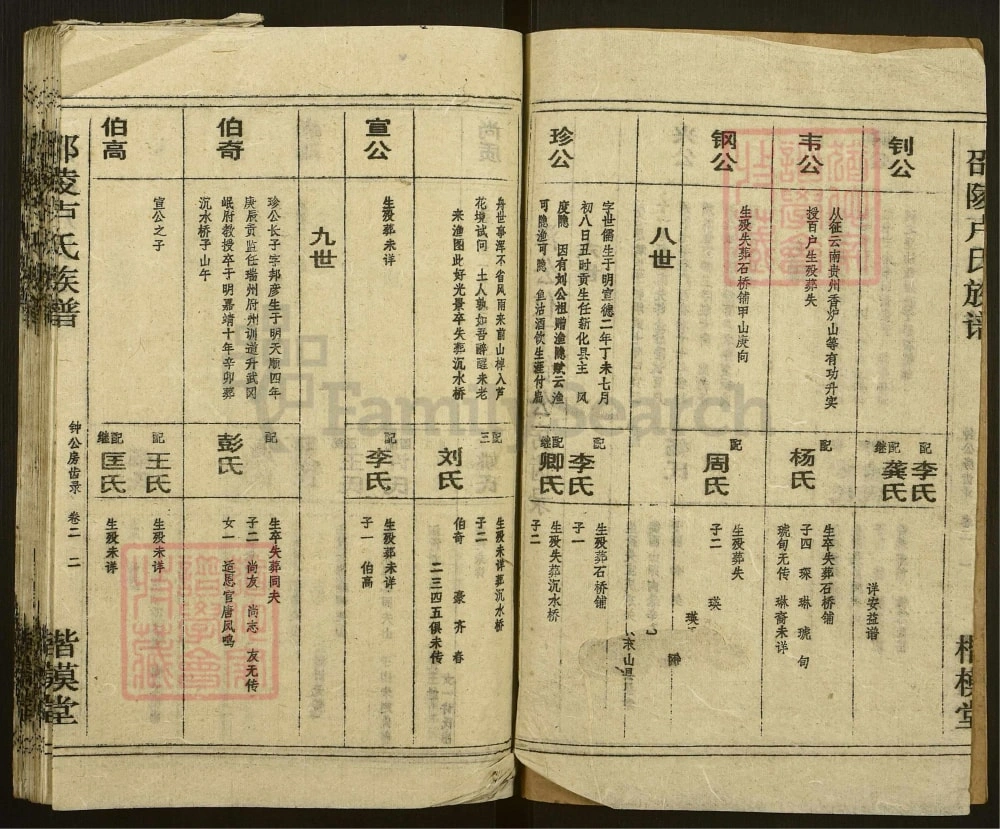 邵陵卢氏族谱
楷模堂
钊公
配李氏
继配龚氏
详安益谱
韦公
从征云南贵州香炉山等有功升实
授百户生殁葬失
配杨氏
生卒失葬石桥铺
子四 琛 琳 琥 旬
琥旬无传 琳裔未详
钢公
生殁失葬石桥铺甲山庚向
配周氏
生殁葬失
子二 瑛
八世
珍公
字世儒生于明宣德二年丁未七月
初八日丑时贡生任新化县主 风
度隐 因有刘公祖赠渔隐赋云渔
可隐渔可隐 鱼沽酒饮生涯付扁
配李氏
生殁葬石桥铺
子一
继配卿氏
生殁失葬沉水桥
子二
舟世事浑不省风雨来前山棹入芦
花境试问 土人孰如吾醉醒来老
来渔图此好光景卒失葬沉水桥
三配刘氏
生殁未详葬沉水桥
子二
伯奇 豪 齐 春
二三四五俱未传
宣公
生殁葬未详
配李氏
生殁葬未详
子一 伯高
九世
伯奇
珍公长子字邦彦生于明天顺四年
庚辰贡监任瑞州府州训道升武冈
岷府教授卒于明嘉靖十年辛卯葬
沉水桥子山午
配彭氏
生卒失葬同夫
子二 尚友 尚志 友无传
女一 适恩官唐凤鸣
伯高
宣公之子
配王氏
生殁未详
继配匡氏
生殁未详
钟公房齿录 卷二 二
楷模堂
FamilySearch